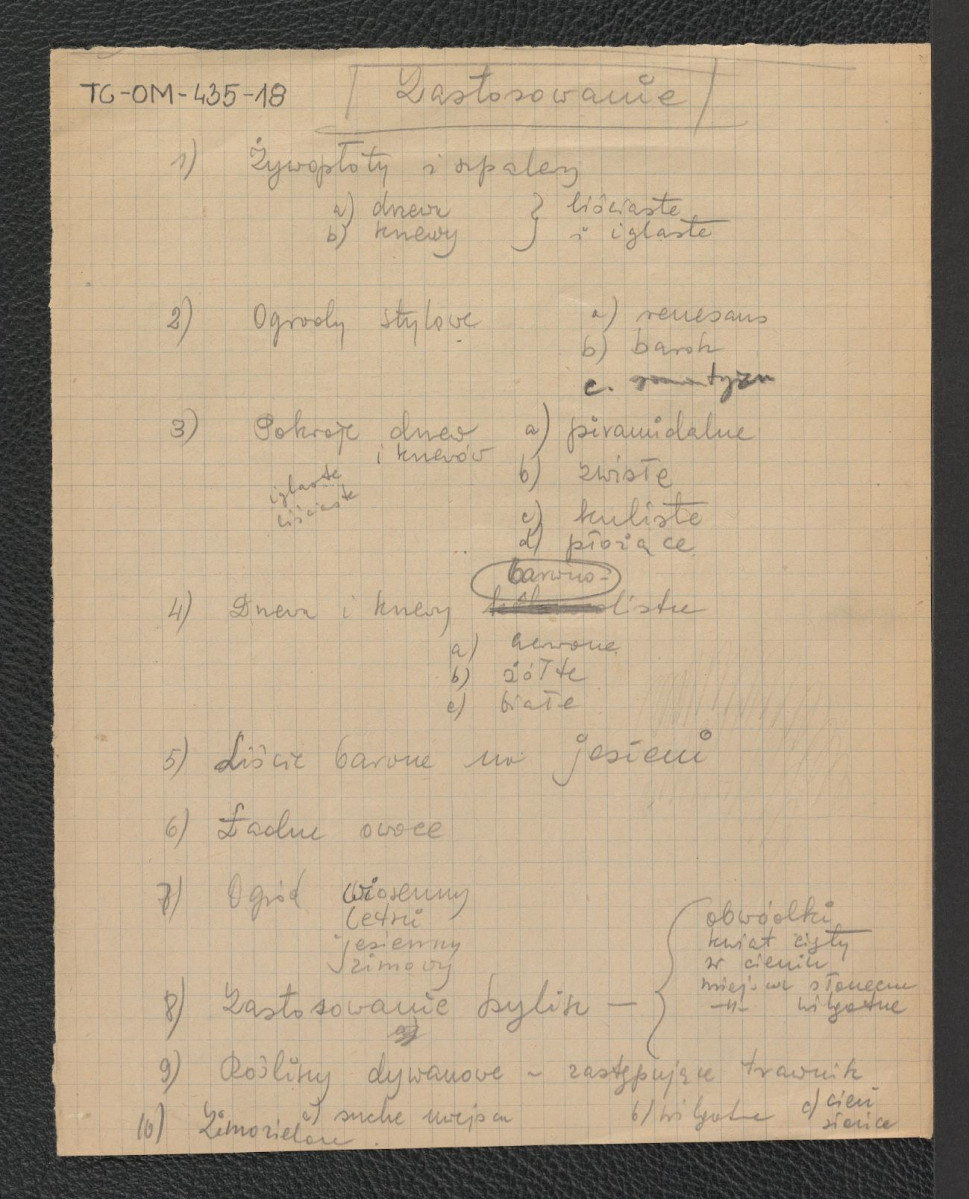 TG-OM-435-18
Zastosowanie
1) Żywopłoty i szpalery
a) drzewa } liściaste
b) krzewy i iglaste
2) Ogrody stylowe a) renesans
b) barok
c. romantyzm
3) Pokroje drzew a) piramidalne
i krzewów
iglaste b) zwisłe
liściaste
c) kuliste
d) płożące
barwno-
4) Drzewa i krzewy listne
a) czerwone
b) żółte
c) białe
5) Liście barwne na jesieni
6) Ładne owoce
7) Ogród wiosenny
letni
jesienny
zimowy
8) Zastosowanie bylin – { obwódki
kwiat cięty
w cieniu
miejsca słoneczne
–"– wilgotne
9) Rośliny dywanowe – zastępujące trawnik
a) suche miejsca b) wilgotne c) cień
słońce
10) Zimozielone